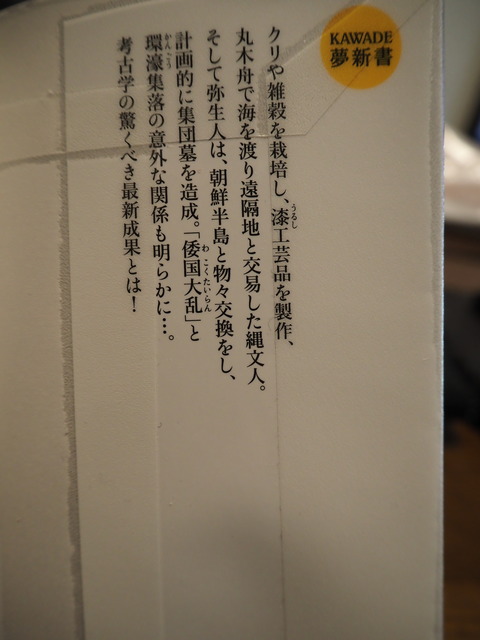 KAWADE
夢新書
クリや雑穀を栽培し、漆工芸品を製作、
丸木舟で海を渡り遠隔地と交易した縄文人。
そして弥生人は、朝鮮半島と物々交換をし、
計画的に集団墓を造成。「倭国大乱」と
環濠集落の意外な関係も明らかに…。
考古学の驚くべき最新成果とは!